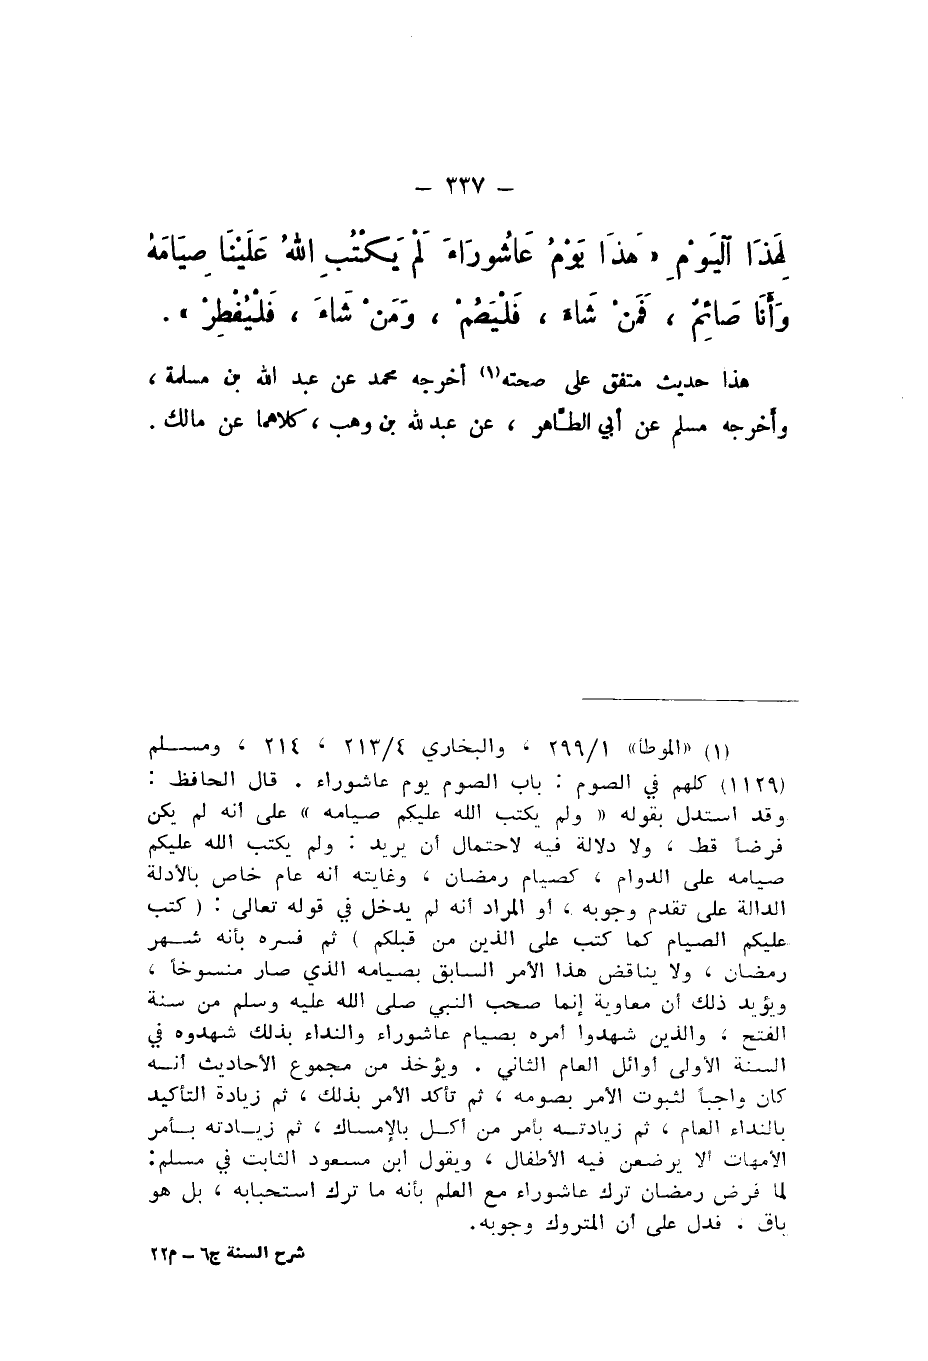 – ٣٣٧ –
لِهَذَا ٱليَوْمِ « هَذَا يَوْمُ عَاشُورَاءَ لَمْ يَكْتُبِ اللهُ عَلَيْنَا صِيَامَهُ
وَأَنَا صَائِمٌ ، فَمَنْ شَاءَ ، فَلْيَصُمْ ، وَمَنْ شَاءَ ، فَلْيُفْطِرْ » .
هذا حديث متفق على صحته(١) أخرجه محمد عن عبد الله بن مسلمة ،
وأخرجه مسلم عن أبي الطَّاهر ، عن عبد لله بن وهب ، كلاهما عن مالك .
(١) «الموطأ» ٢٩٩/١ ، والبخاري ٢١٣/٤ ، ٢١٤ ، ومسلم
(١١٢٩) كلهم في الصوم : باب الصوم يوم عاشوراء . قال الحافظ :
وقد استدل بقوله « ولم يكتب الله عليكم صيامه » على أنه لم يكن
فرضاً قط ، ولا دلالة فيه لاحتمال أن يريد : ولم يكتب الله عليكم
صيامه على الدوام ، كصيام رمضان ، وغايته أنه عام خاص بالأدلة
الدالة على تقدم وجوبه ، أو المراد أنه لم يدخل في قوله تعالى : ( كتب
عليكم الصيام كما كتب على الذين من قبلكم ) ثم فسره بأنه شهر
رمضان ، ولا يناقض هذا الأمر السابق بصيامه الذي صار منسوخاً ،
ويؤيد ذلك أن معاوية إنما صحب النبي صلى الله عليه وسلم من سنة
الفتح ، والذين شهدوا أمره بصيام عاشوراء والنداء بذلك شهدوه في
السنة الأولى أوائل العام الثاني . ويؤخذ من مجموع الأحاديث أنه
كان واجباً لثبوت الأمر بصومه ، ثم تأكد الأمر بذلك ، ثم زيادة التأكيد
بالنداء العام ، ثم زيادته بأمر من أكل بالإمساك ، ثم زيادته بأمر
الأمهات ألا يرضعن فيه الأطفال ، وبقول ابن مسعود الثابت في مسلم:
لما فرض رمضان ترك عاشوراء مع العلم بأنه ما ترك استحبابه ، بل هو
باق . فدل على أن المتروك وجوبه.
شرح السنة ج٦ – م٢٢